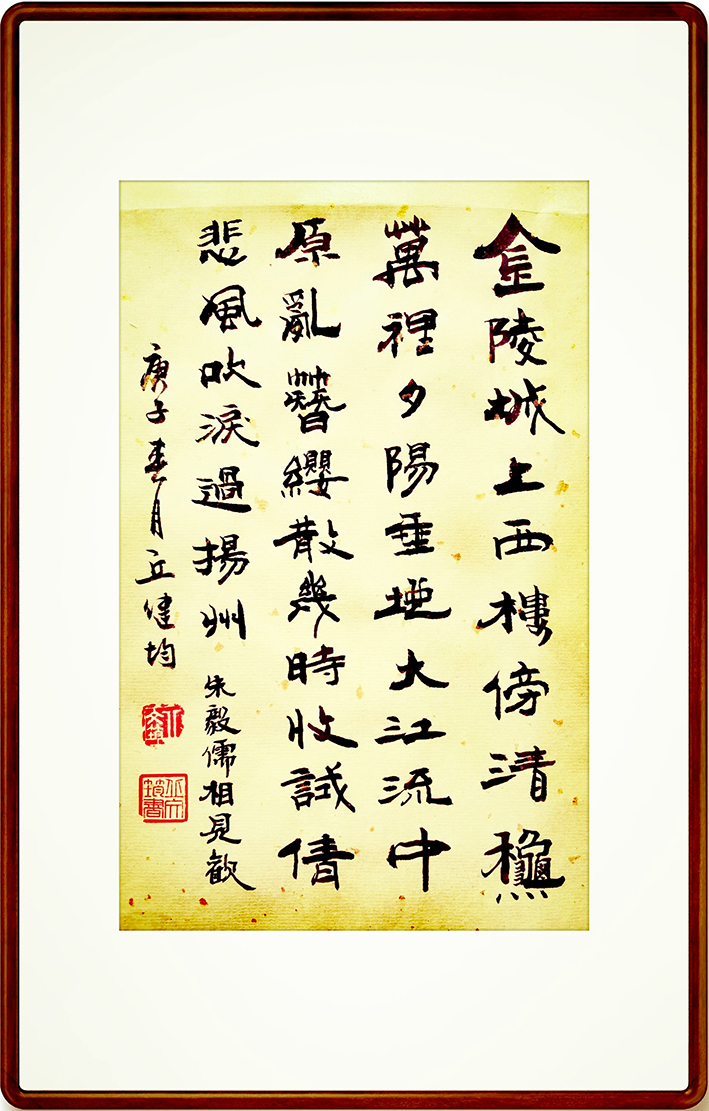 金陵城上西樓傍清龝
萬裡夕陽垂地大江流中
原亂簪纓散幾時收試倩
悲風吹淚過揚州
朱毅儒相見歡
庚子春月丘健均